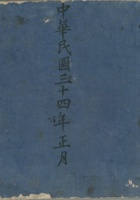 中華民國三十四年正月